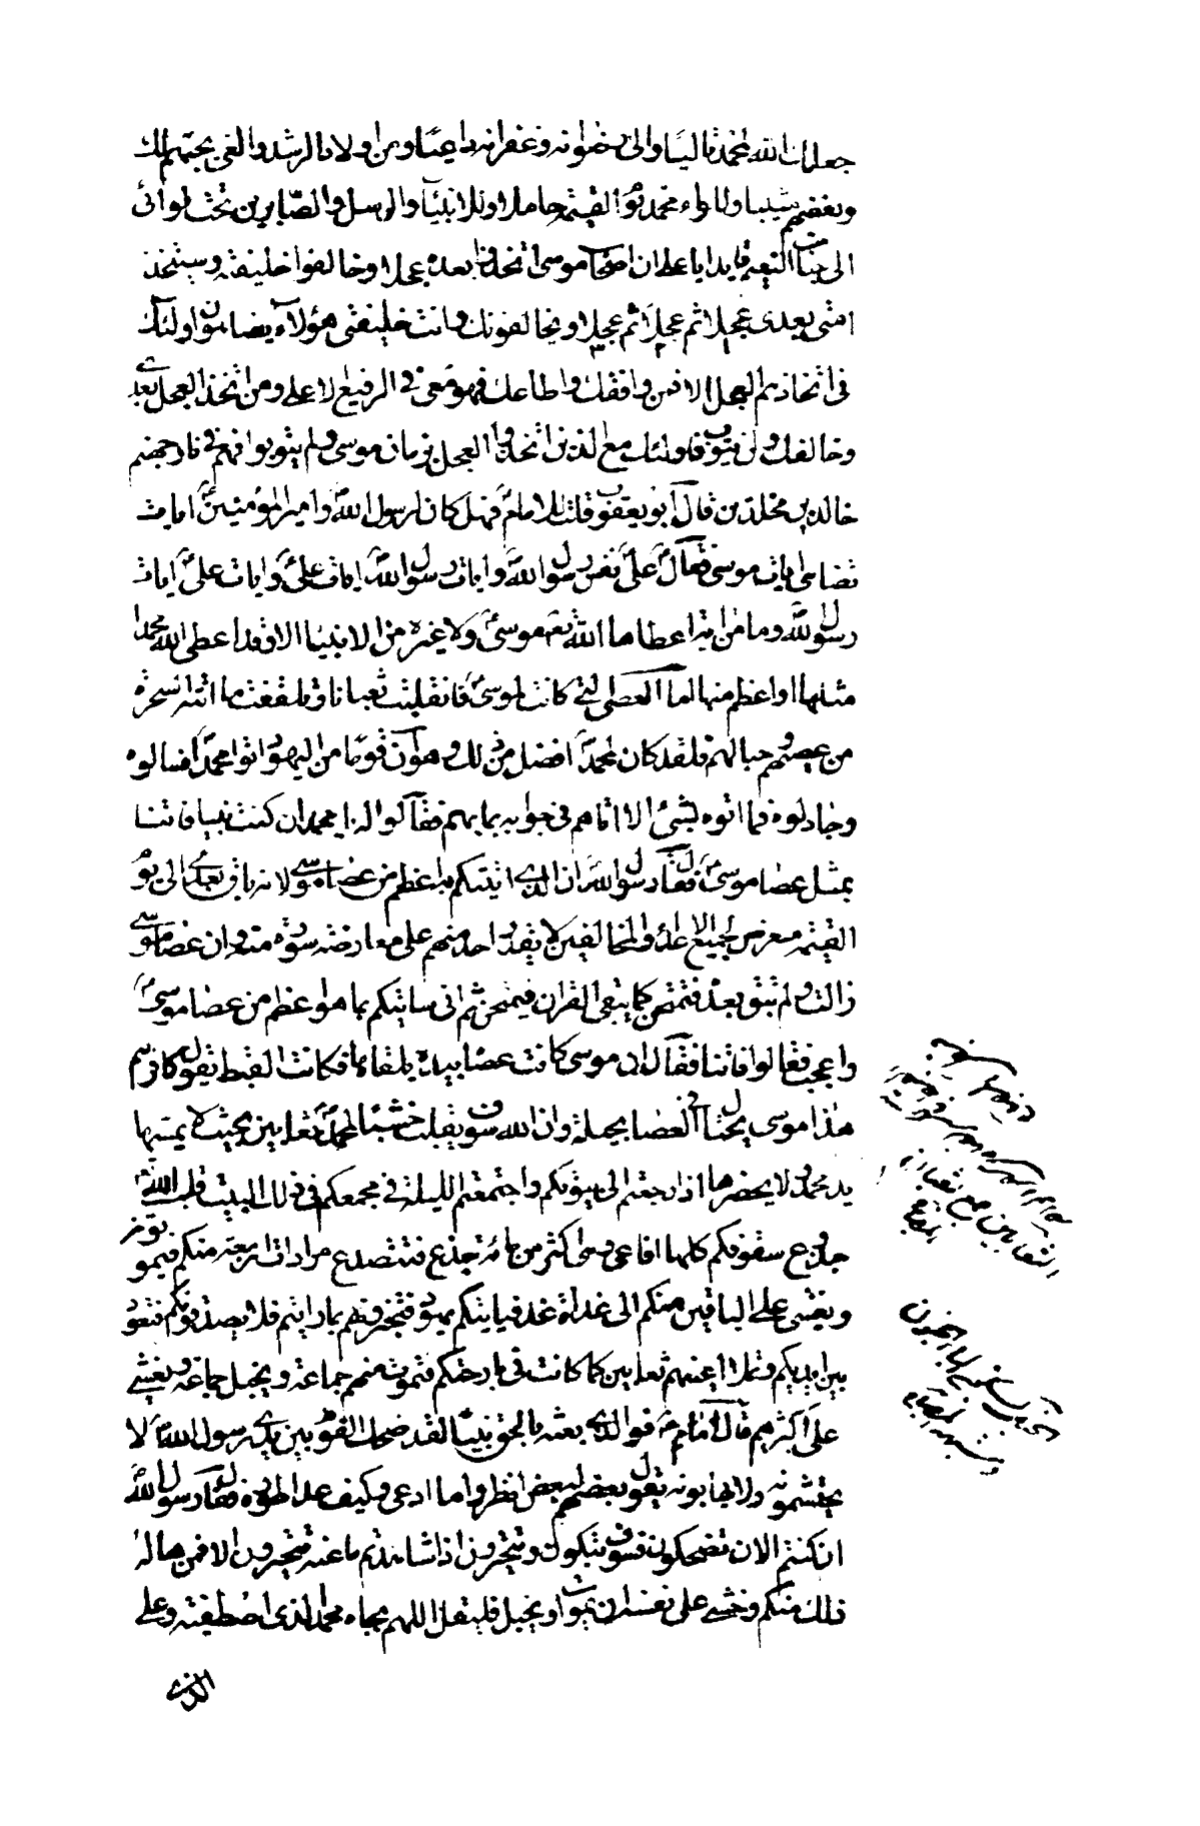 جعلك الله لمحمد تاليا والى رضوانه وغفرانه داعيا و من اولاد الرشد والغى بحبهم لك
وبغضهم منبئا وللواء محمد يوم القيمة حاملا وللانبياء والرسل والصابرين تحت لوائى
الى جنات النعيم قايدا يا على ان اصحاب موسى اتخذوا بعده عجلا وخالفوا خليفته وسيتخذ
امتى بعدى عجلا ثم عجلا ثم عجلا ويخالفونك وانت خليفتى هؤلاء يضاهون اولئك
فى اتخاذهم العجل الا فمن وافقك واطاعك فهو معنى فى الرفيع الاعلى ومن اتخذ العجل بعدى
وخالفك ولن يتوب فاولئك مع الذين اتخذوا العجل زمان موسى ولم يتوبوا فهم فى نار جهنم
خالدين مخلدين قال ابو يعقوب قلت للامام فهل كان لرسول الله وامير المؤمنين ايات
تضاهى ايات موسى فقال على نفس رسول الله وايات رسول الله ايات على وايات على ايات
رسول الله وما من اية اعطاها الله تعه موسى ولا غيره من الانبيا الا وقد اعطى الله محمدا
مثلها او اعظم منها اما العصى التى كانت لموسى فانقلبت ثعبانا وتلقفت ما اتته السحرة
من عصيهم وحبالهم فلقد كان لمحمد افضل من ذلك وهو ان قوما من اليهود اتوا محمدا فسالوه
وجادلوه فما اتوه بشئ الا اتاهم فى جوابه بما بهتهم فقالوا له يا محمد ان كنت نبيا فاتنا
بمثل عصا موسى فقال رسول الله ان الذى اتيتكم به اعظم من عصا موسى لانه باق بعدى الى يوم
القيمه معرض لجميع الاعداء والمخالفين لا يقدر احد منهم على معارضته سورة منه وان عصا موسى
زالت ولم تبق بعده فتمتحن كما يبقى القران فيمتحن ثم انى ساتيكم بما هو اعظم من عصا موسى
واعجب فقالوا فاتنا فقال ان موسى كانت عصا بيده يلقاها فكانت القبط يقول كافرهم
هذا موسى يحتال فى العصا بحيلة وان الله سوف يقلب خشبا لمحمد ثعابين بحيث لا يمسها
يد محمد ولا يحضرها اذا رجعتم الى بيوتكم واجتمعتم الليلة فى مجمعكم فى ذلك البيت قلب الله
جذوع سقوفكم كلها افاعى وهى اكثر من مائة جذع فتتصدع مرارات اربعة منكم فيموتون
ويغشى على الباقين منكم الى غداة غد فياتيكم يهود فتخبرونهم بما رايتم فلا يصدقونكم فتعود
بين ايديكم وتملا اعينهم ثعابين كما كانت فى بارحتكم فتموت منهم جماعة ويخبل جماعة ويغشى
على اكثرهم قال الامام فوالذى بعثه بالحق نبيا لقد ضحك القوم بين يدى رسول الله لا
يحتشمونه ولا يهابونه يقول بعضهم لبعض انظروا ما ادعى وكيف عدا طوره فقال رسول الله
ان كنتم الان تضحكون فسوف تبكون وتتحيرون اذا شاهدتم ما عنه تخبرون الا فمن هاله
ذلك منكم وخشى على نفسه ان يموت او يخبل فليقل اللهم بجاه محمد الذى اصطفيته وعلى
الذى